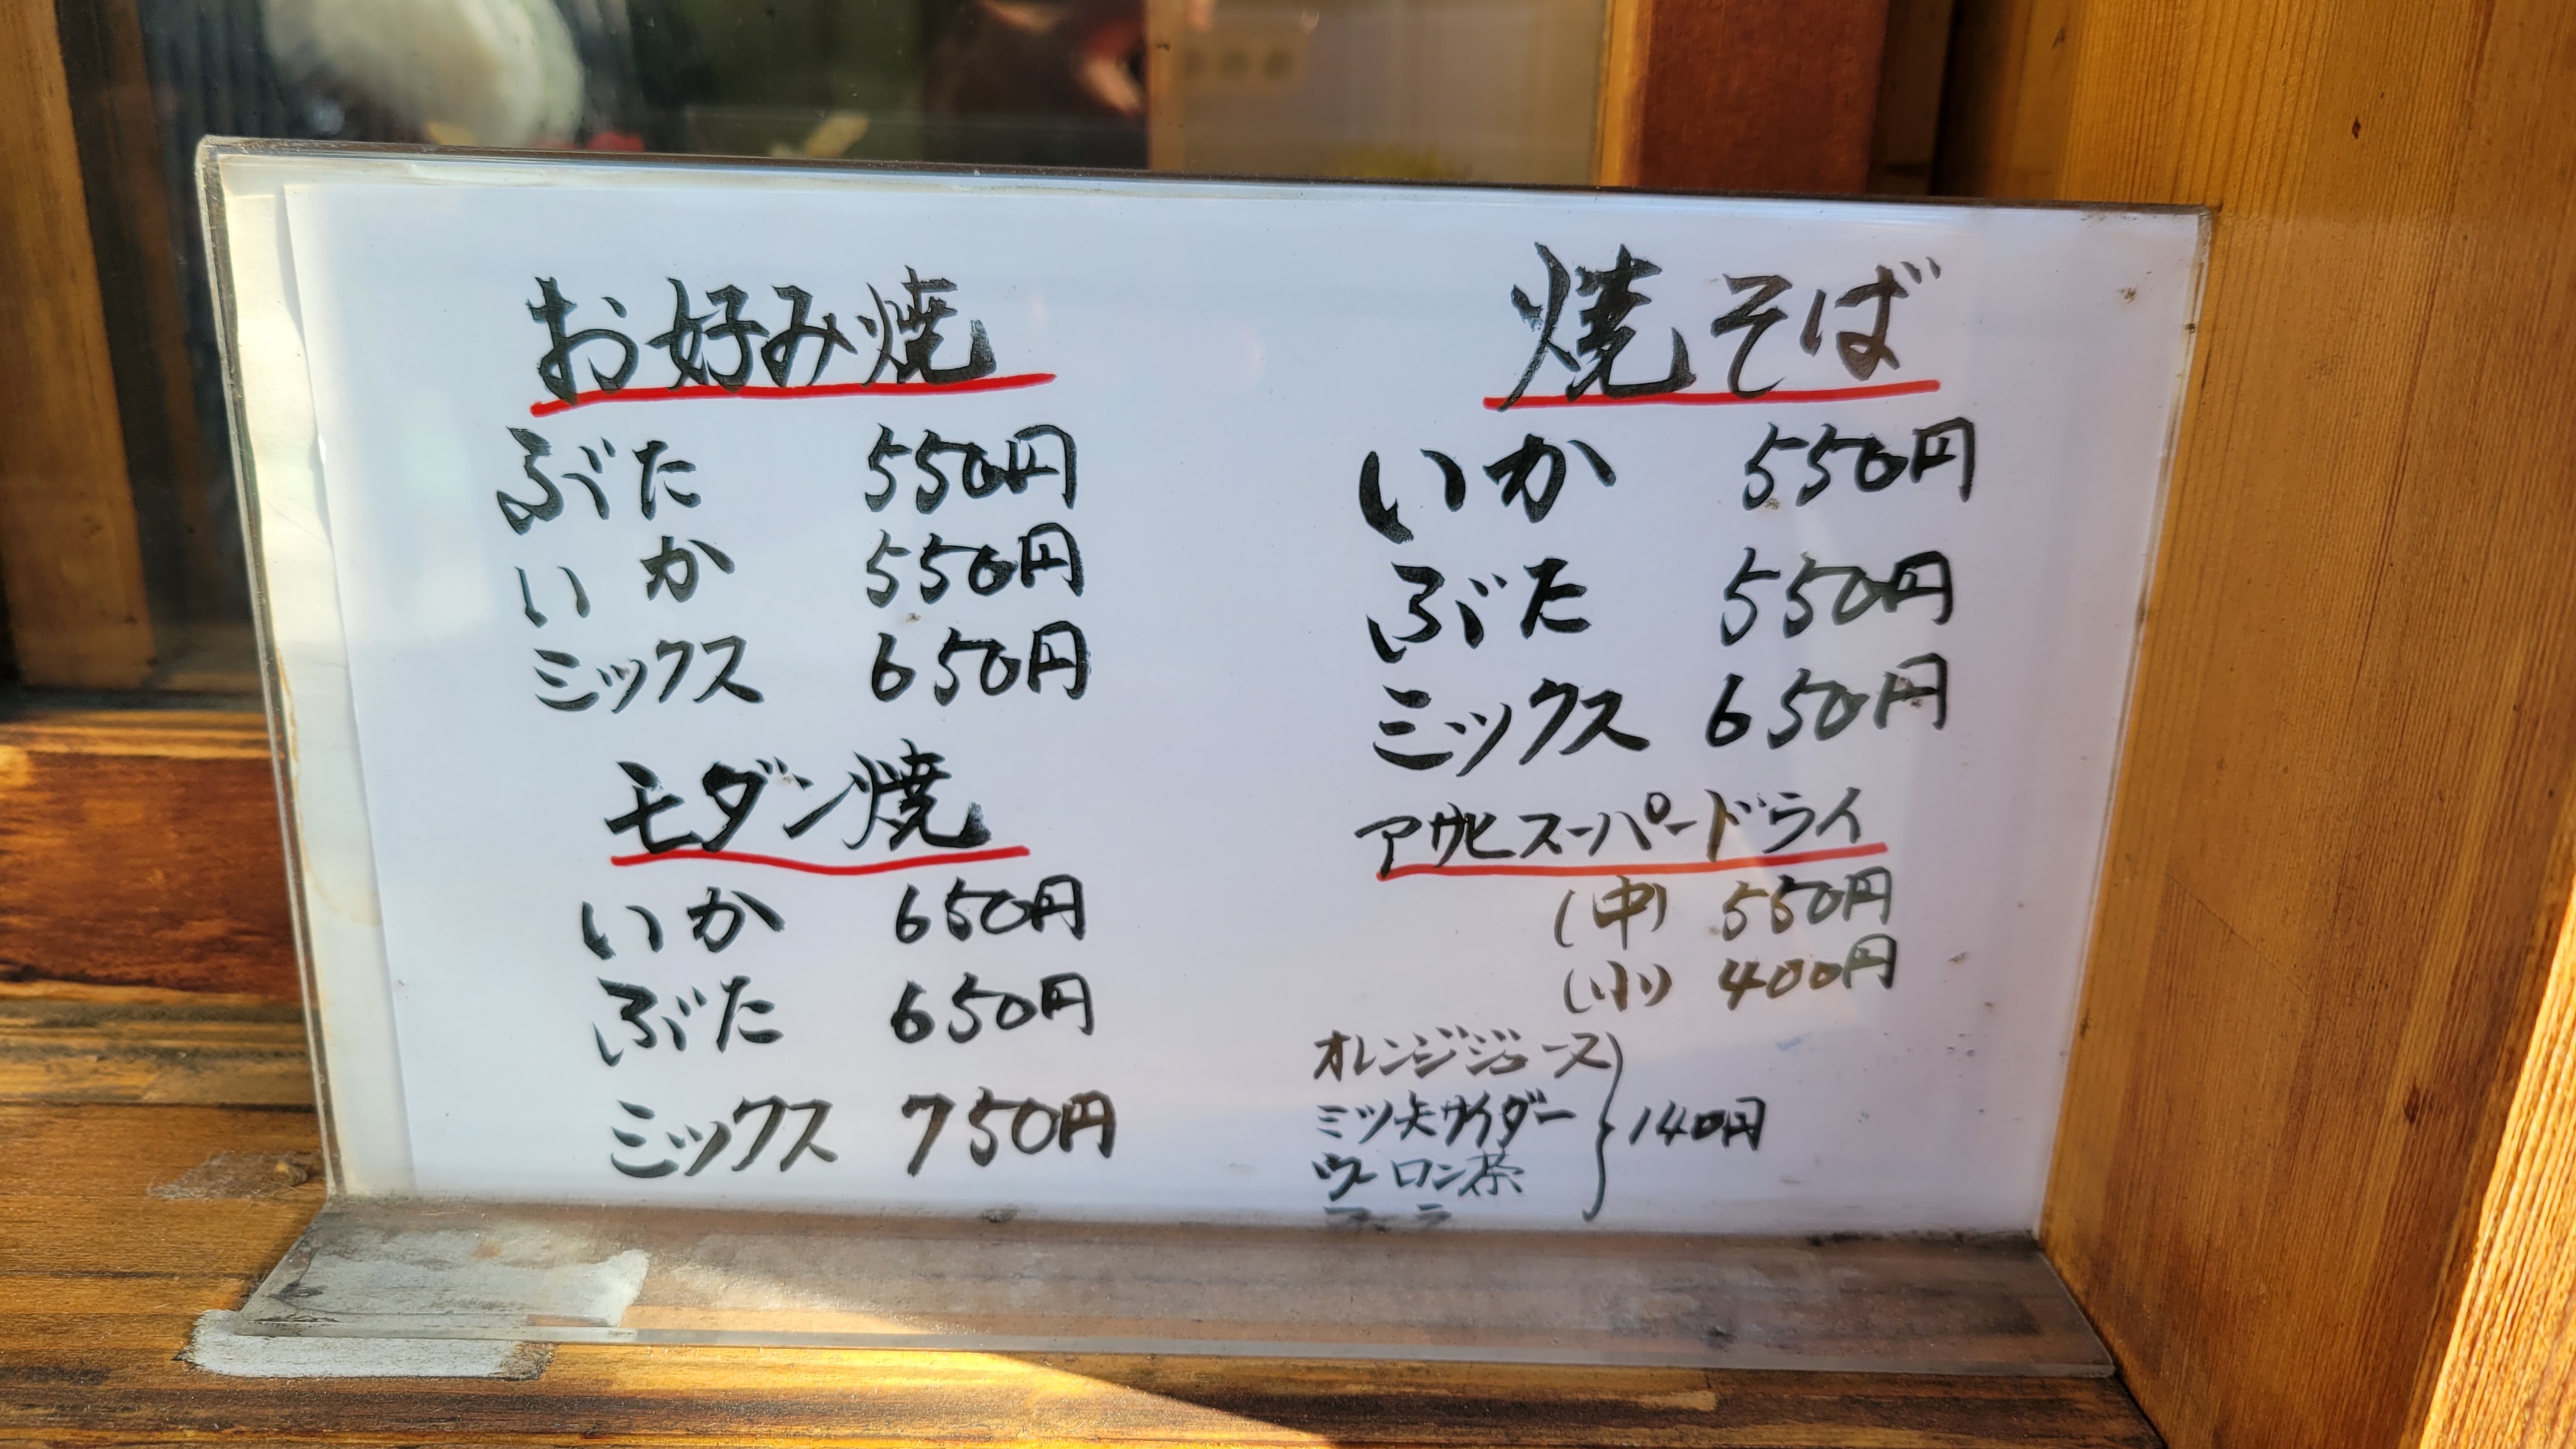 お好み焼
ぶた 550円
いか 550円
ミックス 650円
モダン焼
いか 650円
ぶた 650円
ミックス 750円
焼そば
いか 550円
ぶた 550円
ミックス 650円
アサヒスーパードライ
(中) 550円
(小) 400円
オレンジジュース
ミツ矢サイダー
ウーロン茶
140円